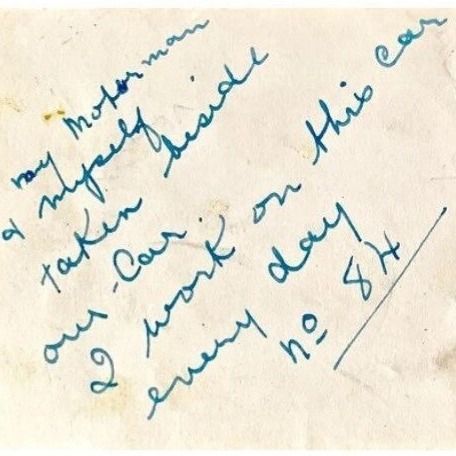 my Motorman
& myself
taken beside
our Car.
I work on this car
every day
No 84